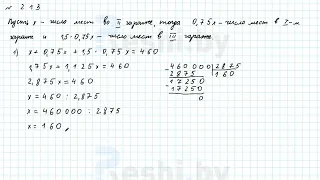 № 213
Пусть x - число мест во II гараже, тогда 0,75x - число мест в I-м
гараже и 1,5·0,75x - число мест в III гараже.
1) x + 0,75x + 1,5 · 0,75x = 460
1,75x + 1,125x = 460
2,875x = 460
x = 460 : 2,875
x = 460 000 : 2875
x = 160
460 000 | 2875
2875 | 160
17250
17250
0
Reshi.by